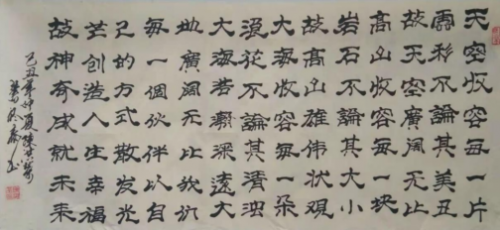 天空收容每一片
雲彩不論其美丑
故天空廣阔无比
高山收容每一块
岩石不論其大小
故高山雄伟状观
大海收容每一朵
浪花不論其清浊
大海浩瀚深遠大
地廣阔无比我们
每一個伙伴以自
己的方式散发光
芒创造人生幸福
故神奇成就未来
己丑年仲夏